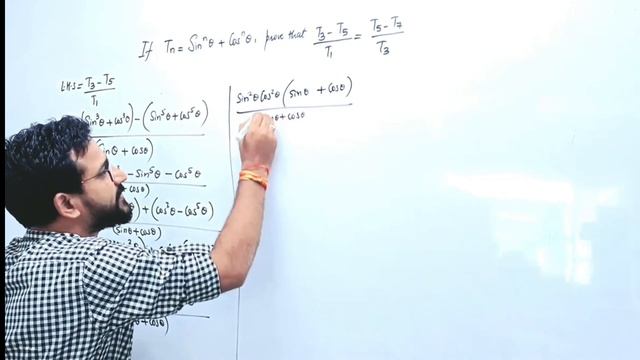 If Tn = Sinⁿθ + Cosⁿθ, prove that (T3 - T5)/T1 = (T5 - T7)/T3
L.H.S = (T3 - T5)/T1
(Sin³θ + cos³θ) - (Sin⁵θ + cos⁵θ)
(Sinθ + cosθ)
- Sin⁵θ - cos⁵θ
+ cosθ)
) + (cos³θ - cos⁵θ)
(Sinθ + cosθ)
θ + cosθ)
Sin²θ cos²θ (Sinθ + cosθ)
θ + cosθ